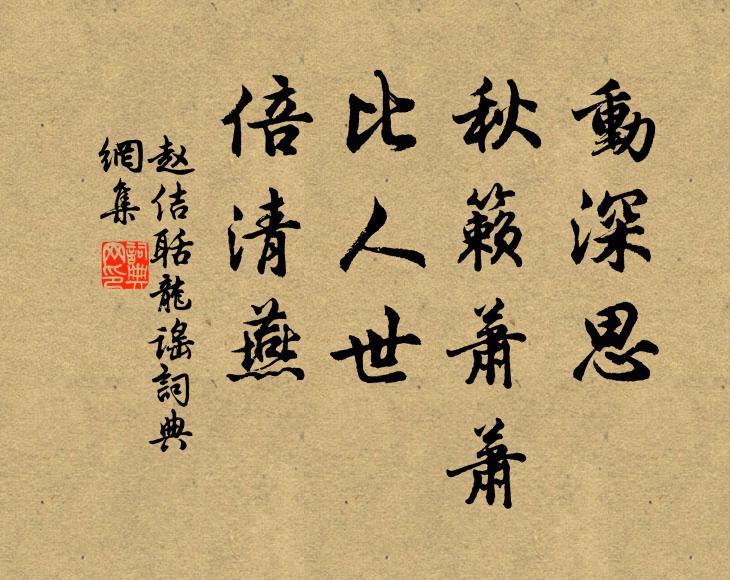 動深思
秋籟蕭蕭
比人世
倍清燕
赵佶聒龍謠詞典
網集
詞典网印